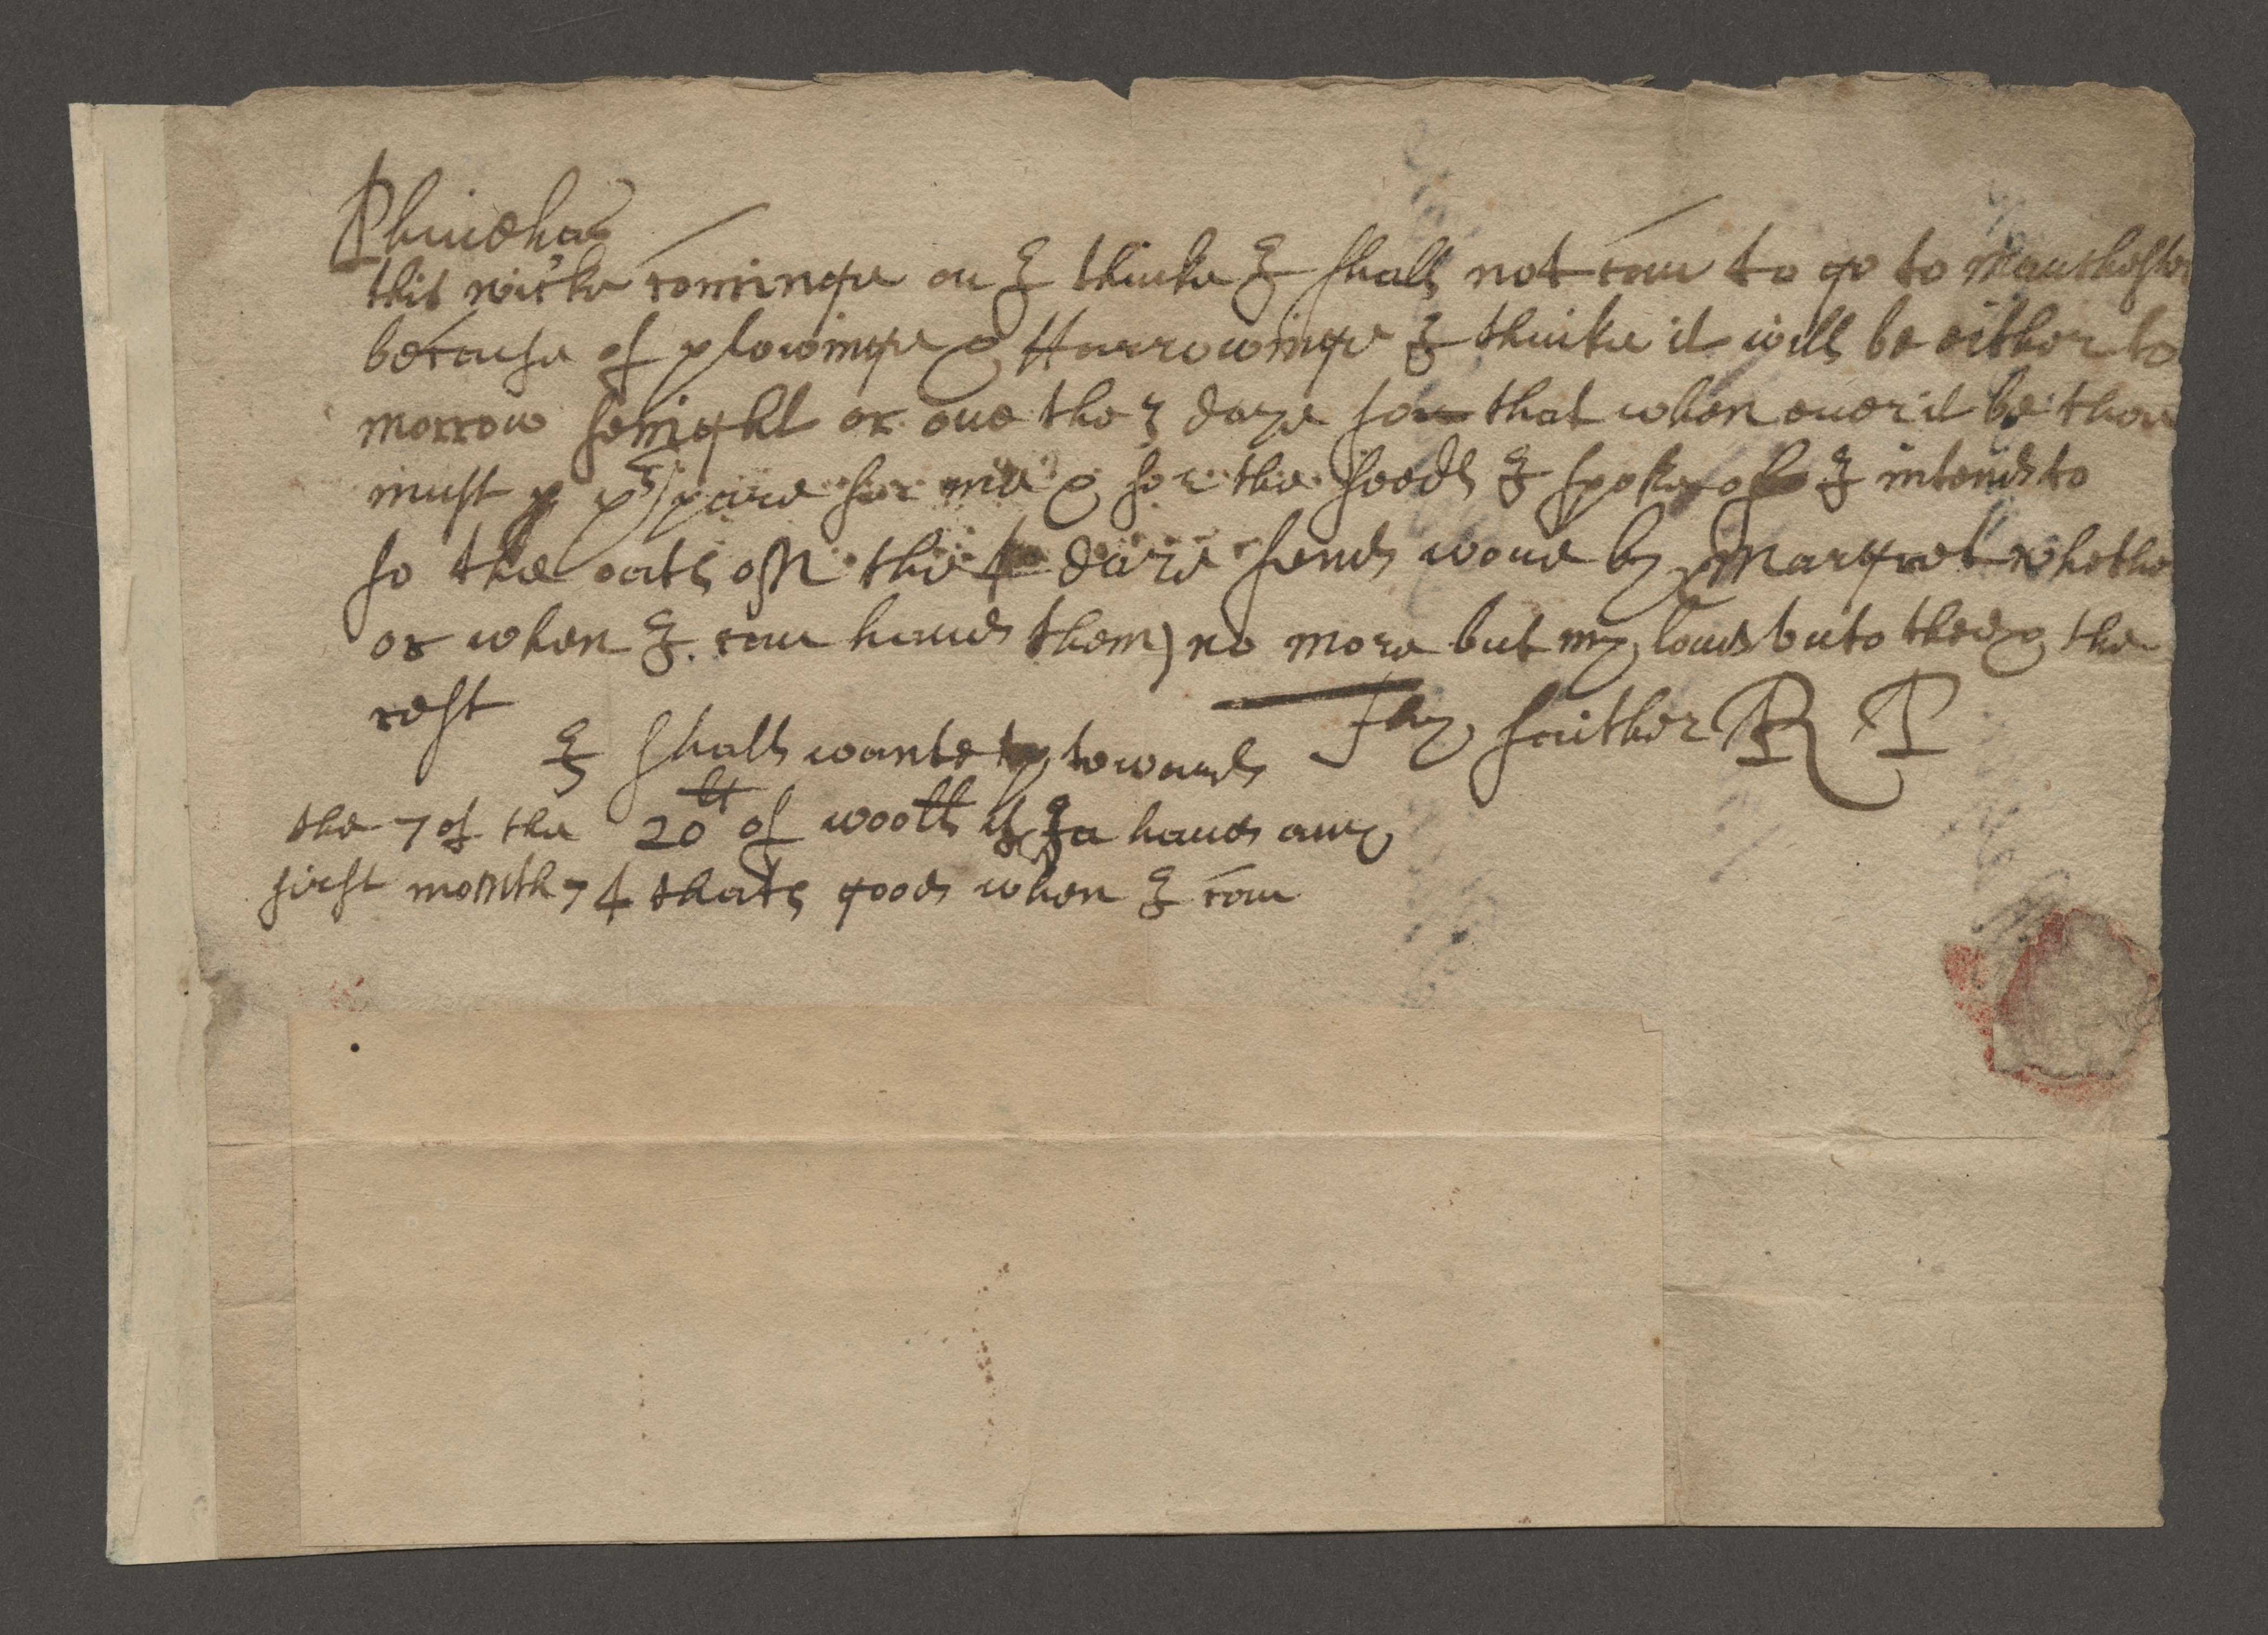 Phinehas
this wicke cominge on I thinke I shall not com to go to Manchester
becawse of plowinge & Harrowinge I thinke it will be either to
morrow senight or one the 3 daye so that when ever it be thou
must prepare for me & for the seeds I spoke of I intend to
so the oats on the 4 daye send word by Margret whether
or when I can have them) no more but my love unto thee & the
rest
Thy faither R T
I shall wante towards
the 7 of the 20 lt of wooll if a have any
first month 74 thats good when I com